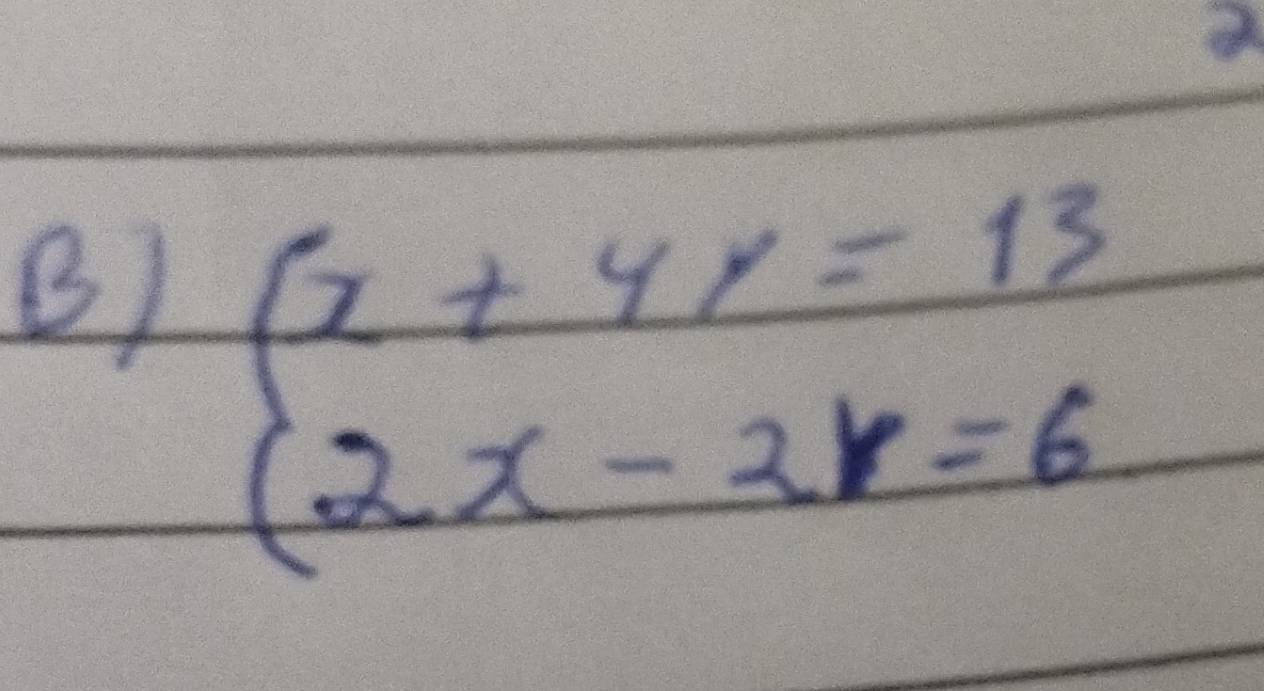 2
B) { x + 4y = 13
2x - 2y = 6